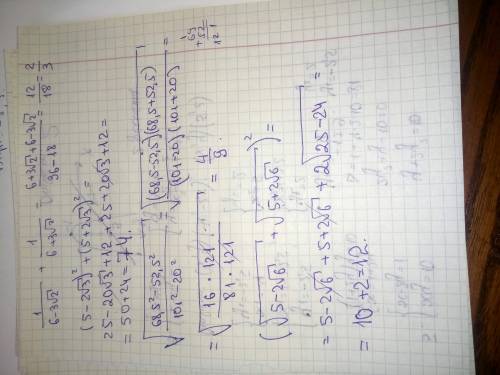 1/(6-3√2) + 1/(6+3√2) = (6+3√2+6-3√2)/(36-18) = 12/18 = 2/3
(5-2√3)² + (5+2√3)² =
25-20√3+12+25+20√3+12=
= 50+24=74.
√((68,5²-52,5²)/(101²-20²)) = √((68,5-52,5)(68,5+52,5)/((101-20)(101+20))) =
69
+52
121
= √((16·121)/(81·121)) = 4/9.
(√(5-2√6) + √(5+2√6))² =
= 5-2√6 + 5+2√6 + 2√(25-24) =
= 10+2=12.